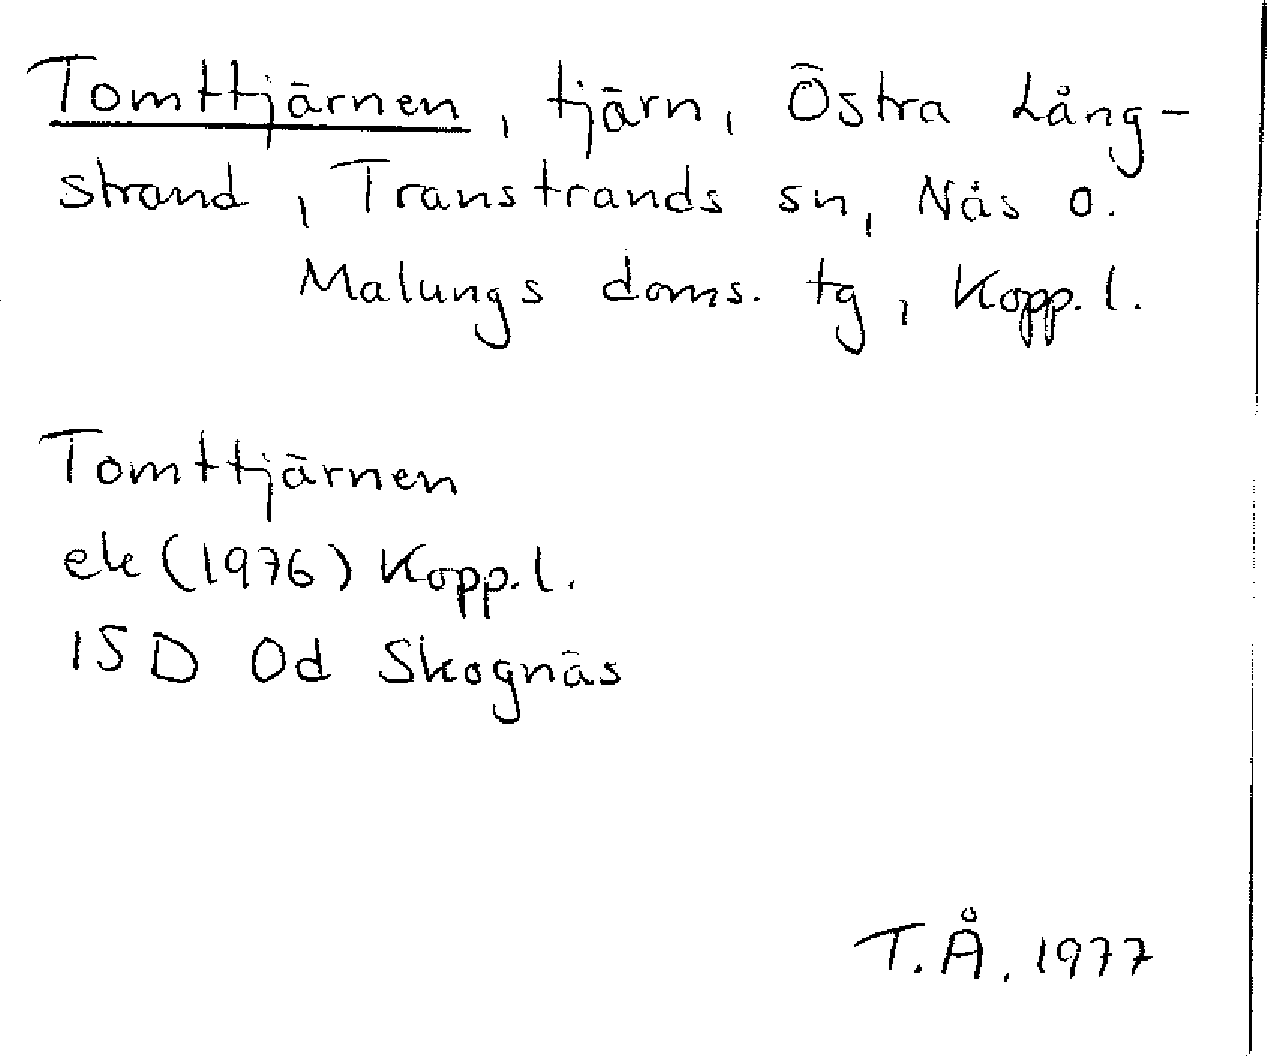 Tomttjärnen, tjärn, Östra Lång-
strand, Transtrands sn, Nås o.
Malungs doms. tg, Kopp. l.
Tomttjärnen
ek (1976) Kopp. l.
15D 0d Skognäs
T.Å. 1977